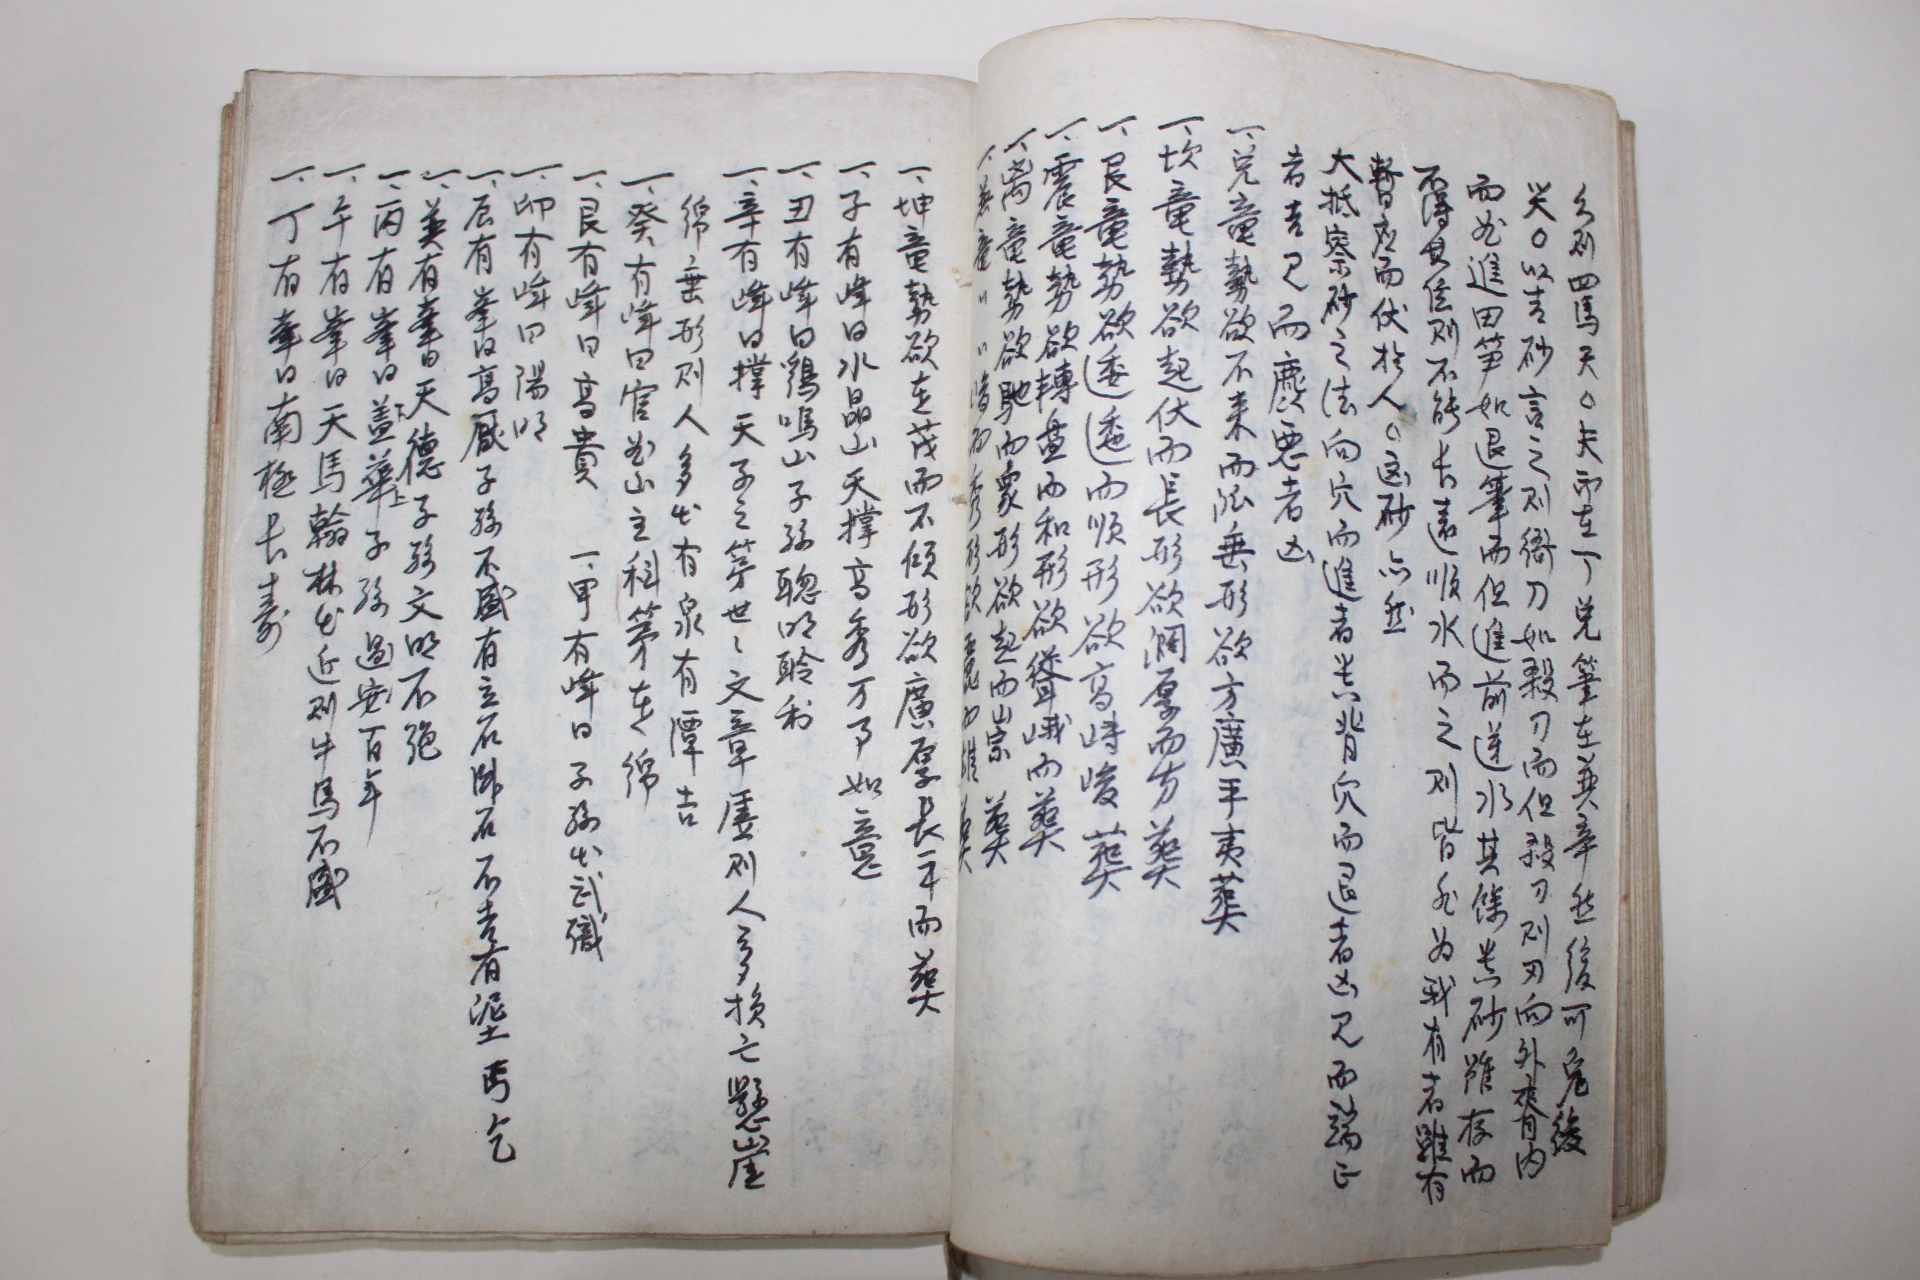 則四馬天○夫 在丁兌筆在巽辛然後可免後
哭○以吉砂言之則衙刀如殺刀而但殺刀則刃向外 有內
而 進田笋如退筆而但進前逆水其餘吉砂雖存而
不得其位則不能長遠順水而之則皆 為我有者雖有
暫應而伏於人○凶砂亦然
大抵察砂之法向穴而進者吉背穴而退者凶見而端正
者吉見而麁惡者凶
一、兌竜勢欲不來而 垂形欲方廣平夷葬
一、坎竜勢欲起伏而長形欲濶厚而方葬
一、艮竜勢欲逶迤而順形欲高峙峻葬
一、震竜勢欲轉盘而和形欲聳峨而葬
一、离竜勢欲馳而 形欲起而崇葬
一、巽竜〃〃 而秀形欲 而雄葬
一、坤竜勢欲 茂而不傾形欲廣厚長平而葬
一、子有峰曰水晶山天撑高秀万事如意
一、丑有峰曰鷄鳴山子孫聰明聆利
一、辛有峰曰撑天子之笋世〻文章 則人多損亡懸崖
綿垂形則人多 有泉有潭吉
一、癸有峰曰官 山主科第在
一、艮有峰曰高貴 一、甲有峰曰子孫出武職
一、卯有峰曰陽明
一、辰有峯曰高 子孫不盛有立石臥石不吉有泥土丐乞
一、巽有峯曰天德子孫文明不絕
一、丙有峯曰盖華子孫過安百年
一、午有峯曰天馬翰林出近則牛馬不盛
一、丁有峯曰南極長壽